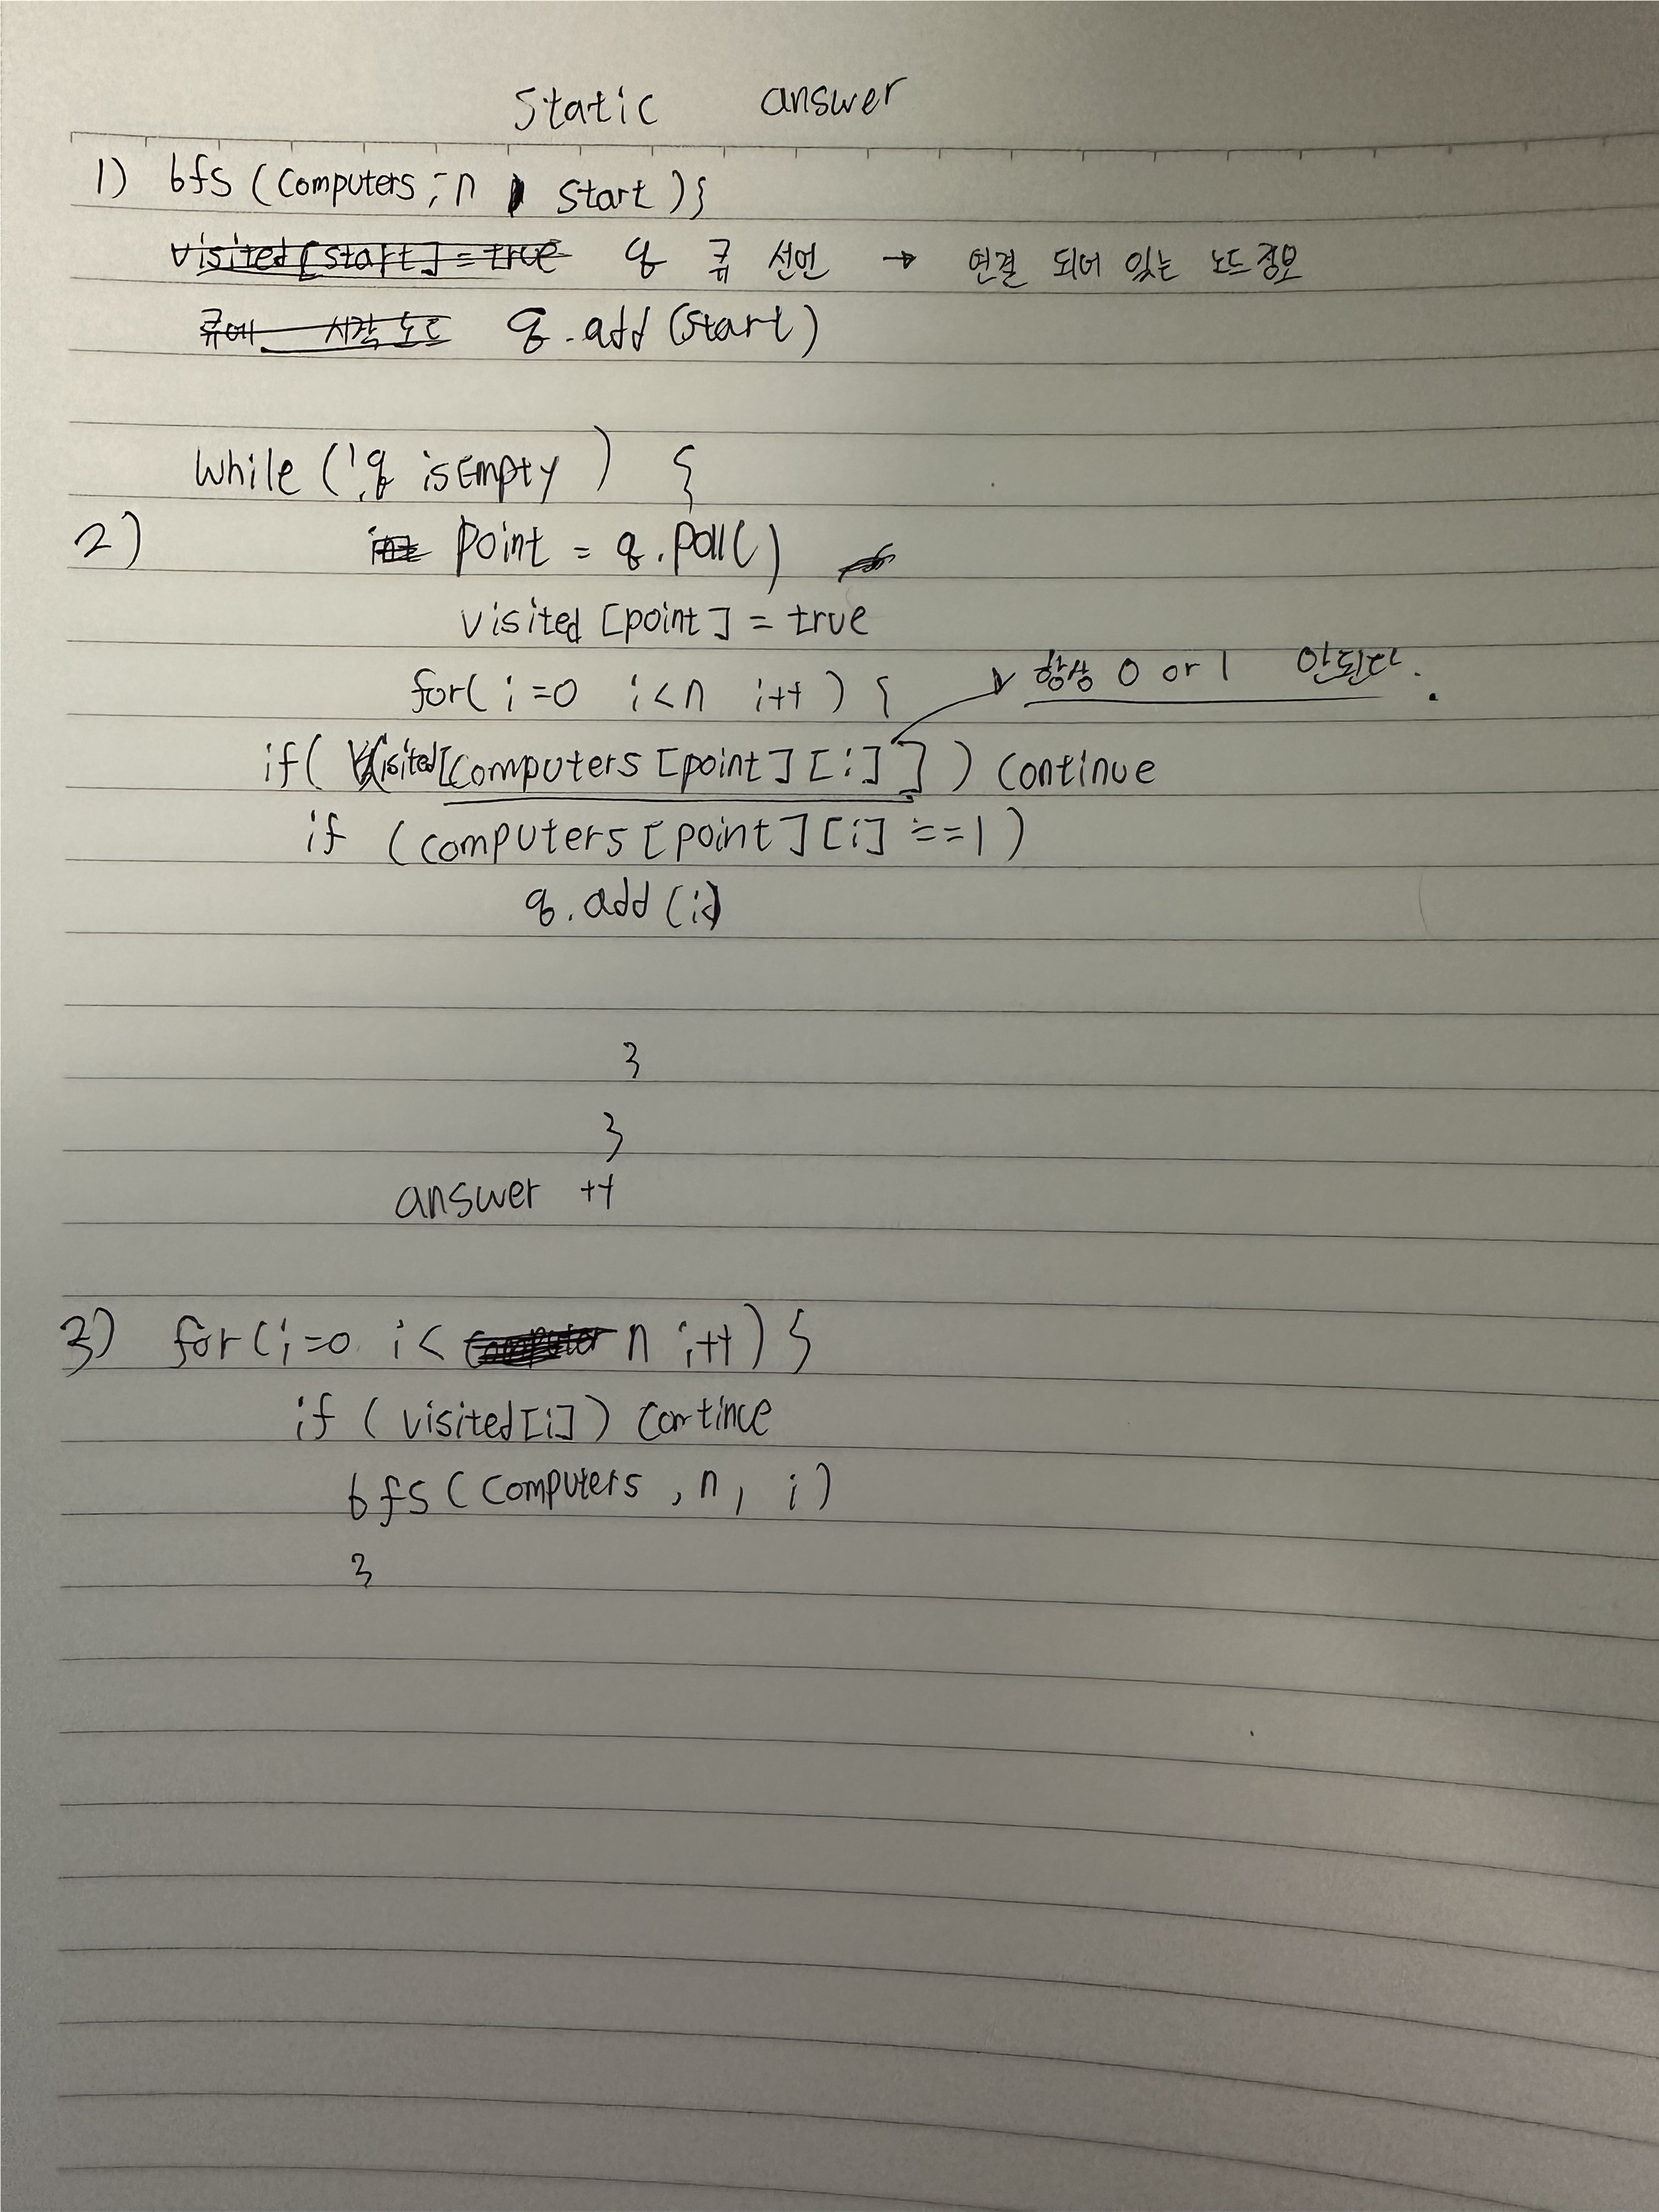 Static answer
1) bfs (Computers, n, Start) {
visited[start] = true q 큐 선언 → 연결 되어 있는 노드정보
큐에 시작 노드 q.add (Start)
While (!q isEmpty) {
2) int Point = q.Poll()
visited [point] = true
for( i=0 i<n i++ ) { 항상 0 or 1 안된다.
if( Visited[Computers [point] [i] ] ) Continue
if (computers [point] [i] == 1 )
q.add (i)
}
}
answer ++
3) for(i=0 i< computer n i++) {
if ( visited[i]) Contince
bfs ( Computers , n, i )
}